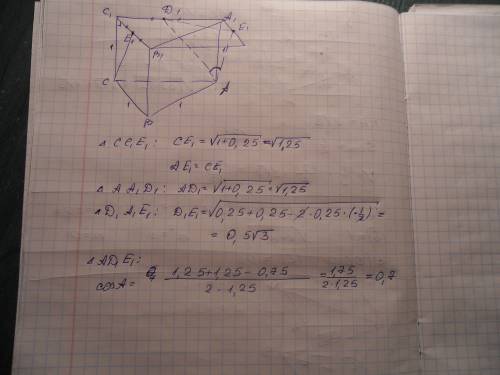 C₁ D₁ A₁
E₁ E₁
B₁
1 1
C A
1 1
B
△ CC₁E₁: CE₁ = √1+0,25 = √1,25
AE₁ = CE₁
△ AA₁D₁: AD₁ = √1+0,25 = √1,25
△ D₁A₁E₁: D₁E₁ = √0,25+0,25-2·0,25·(-1/2) =
= 0,5√3
△ AD₁E₁:
cos A = 1,25+1,25-0,75 / 2·1,25 = 1,75 / 2·1,25 = 0,7